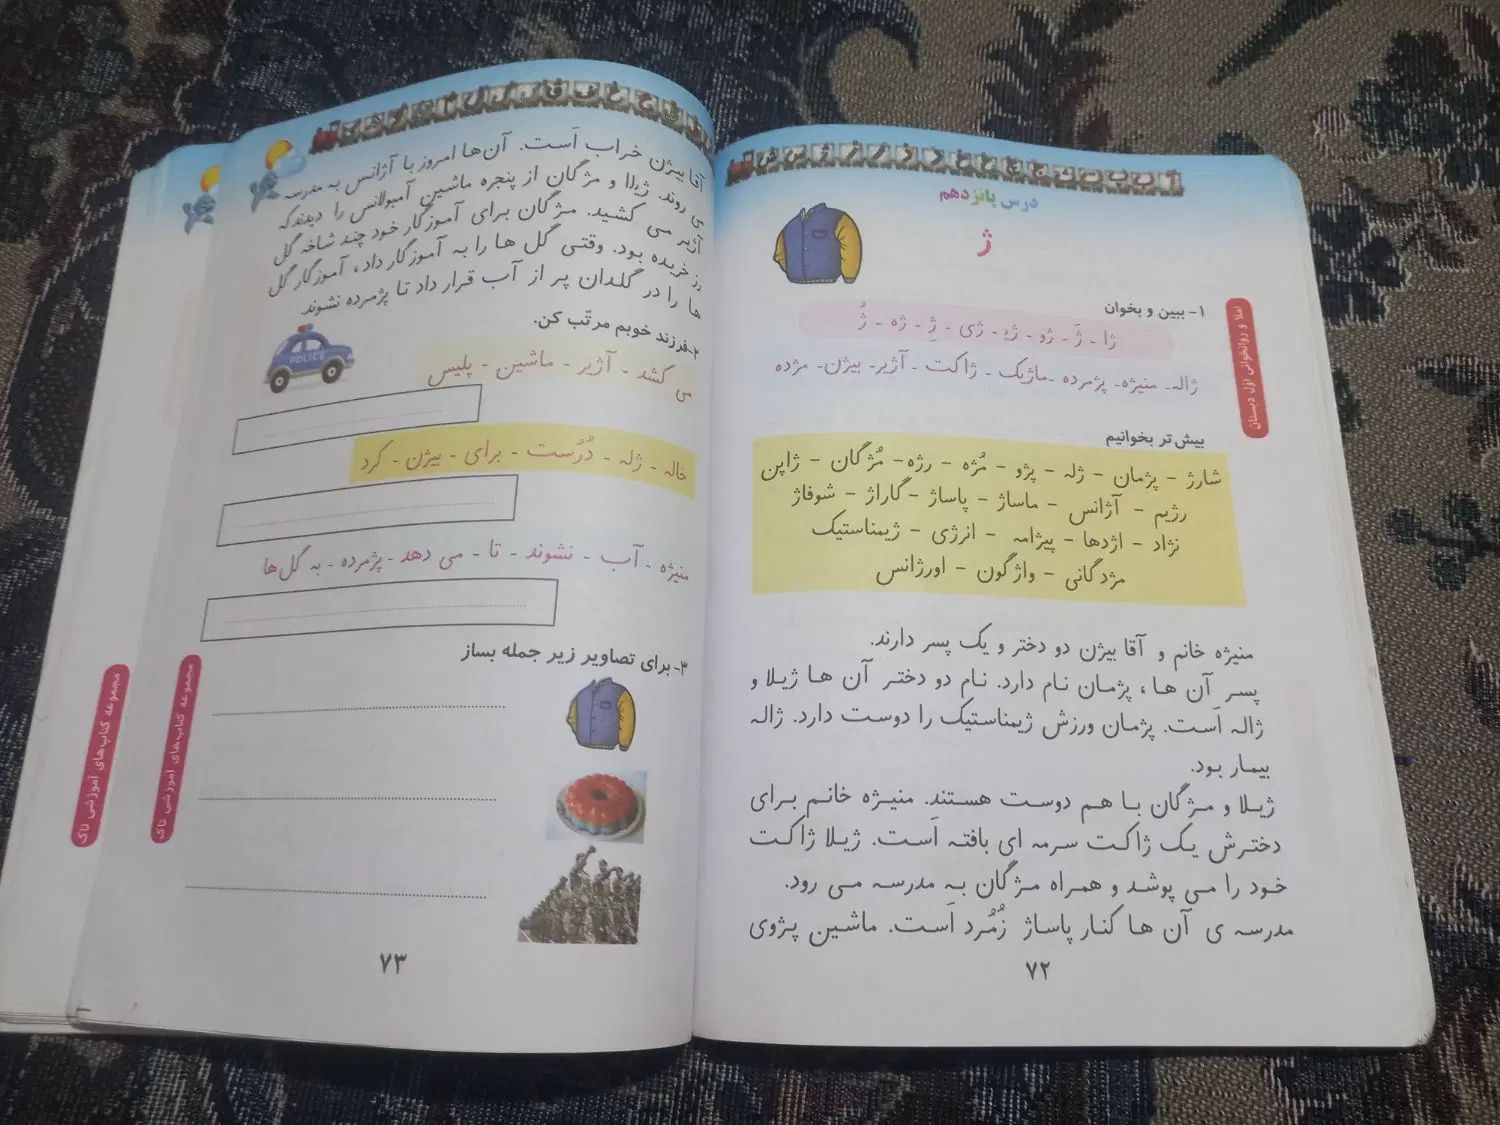 درس پانزدهم
ژ
۱- ببین و بخوان
ژا - ژَ - ژو - ژیـ - ژی - ژِ - ژه - ژُ
ژاله - منیژه - پژمرده - ماژیک - ژاکت - آژیر - بیژن - مژده
بیش تر بخوانیم
شارژ - پژمان - ژله - پژو - مُژه - رژه - مُژگان - ژاپن
رژیم - آژانس - ماساژ - پاساژ - گاراژ - شوفاژ
نژاد - اژدها - پیژامه - انرژی - ژیمناستیک
مژدگانی - واژگون - اورژانس
منیژه خانم و آقا بیژن دو دختر و یک پسر دارند.
پسر آن ها، پژمان نام دارد. نام دو دختر آن ها ژیلا و
ژاله اَست. پژمان ورزش ژیمناستیک را دوست دارد. ژاله
بیمار بود.
ژیلا و مژگان با هم دوست هستند. منیژه خانم برای
دخترش یک ژاکت سرمه ای بافته اَست. ژیلا ژاکت
خود را می پوشد و همراه مژگان به مدرسه می رود.
مدرسه ی آن ها کنار پاساژ زُمُرد اَست. ماشین پژوی
۷۲
املا و روانخوانی اوّل دبستان
آقا بیژن خراب اَست. آن ها امروز با آژانس به مدرسه
می روند. ژیلا و مژگان از پنجره ماشین آمبولانس را دیدند که
آژیر می کشید. مژگان برای آموزگار خود چند شاخه گل
رز خریده بود. وقتی گل ها را به آموزگار داد، آموزگار گل
ها را در گلدان پر از آب قرار داد تا پژمرده نشوند
۲-فرزند خوبم مرتّب کن.
می کشد - آژیر - ماشین - پلیس
POLICE
خاله - ژله - دُرُست - برای - بیژن - کرد
منیژه - آب - نشوند - تا - می دهد - پژمرده - به گل‌ها
۳-برای تصاویر زیر جمله بساز
۷۳
مجموعه کتاب‌های آموزشی تاک
مجموعه کتاب‌های آموزشی تاک